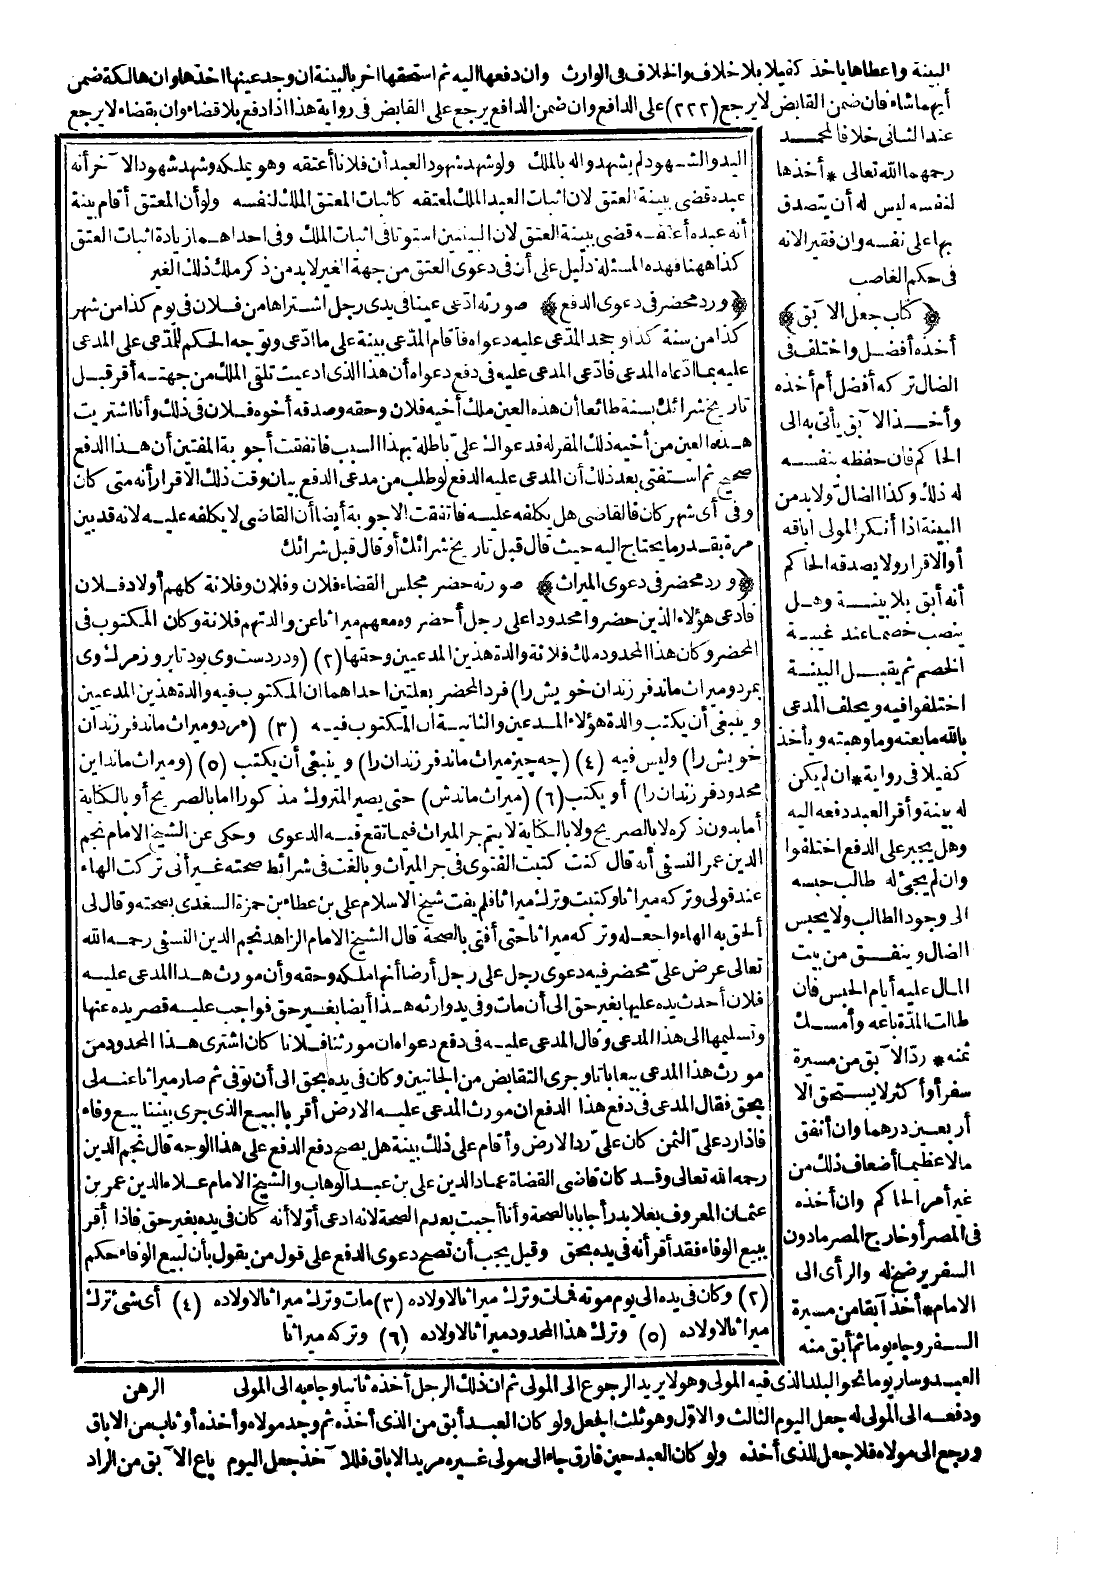 البينة واعطاها يأخذ كفيلا بلا خلاف والخلاف فى الوارث وان دفعها اليه ثم استحقها آخر بالبينة ان وجد عينها اخذها وان هالكة ضمن
أيهما شاء فان ضمن القابض لا يرجع (٢٢٢) على الدافع وان ضمن الدافع يرجع على القابض فى رواية هذا اذا دفع بلا قضاء وان بقضاء لا يرجع
عند الثانى خلافا لمحمد
رحمهما الله تعالى * أخذها
لنفسه ليس له أن يتصدق
بها على نفسه وان فقيرا لانه
فى حكم الغاصب
﴿ كتاب جعل الآبق ﴾
أخذه أفضل واختلف فى
الضال تركه أفضل أم أخذه
وأخــذ الآبق يأتى به الى
الحاكم فان حفظه بنفسه
له ذلك وكذا الضال ولا بد من
البينة اذا أنكر المولى اباقه
أو الاقرار ولا يصدقه الحاكم
أنه أبق بلا بينــة وهــل
ينصب خصما عند غيبة
الخصم ثم يقبــل البينة
اختلفوا فيه ويحلف المدعى
بالله ما بعته وما وهبته ويأخذ
كفيلا فى رواية * ان لم يكن
له بينة وأقر العبد دفعه اليه
وهل يجبر على الدفع اختلفوا
وان لم يجئ له طالب حبسه
الى وجود الطالب ولا يحبس
الضال وينفــق من بيت
المال عليه أيام الحبس فان
طالت المدة باعه وأمسك
ثمنه * رد الآبق من مسيرة
سفر أو أكثر لا يستحق الا
أربعــين درهما وان أنفق
مالا عظيما أضعاف ذلك من
غير أمر الحاكم وان أخذه
فى المصر أو خارج المصر مادون
السفر يرضخ له والرأى الى
الامام * أخذ آبقا من مسيرة
الســفر وجاء يوما ثم أبق منه
اليد والشــهود لم يشهدوا له بالملك ولو شهد شهود العبد أن فلانا أعتقه وهو يملكه وشهد شهود الآخر أنه
عبده قضى ببينة العتق لان اثبات العبد الملك لمعتقه كاثبات المعتق الملك لنفسه ولو أن المعتق أقام بينة
أنه عبده أعتقــه قضى ببينة العتق لان البينتين استوتا فى اثبات الملك وفى احداهــما زيادة اثبات العتق
كذا ههنا فهذه المسئلة دليل على أن فى دعوى العتق من جهة الغير لا بد من ذكر ملك ذلك الغير
﴿ ورد محضر فى دعوى الدفع ﴾ صورته ادعى عينا فى يدى رجل اشتراها من فــلان فى يوم كذا من شهر
كذا من سنة كذا وجحد المدعى عليه دعواه فأقام المدعى بينة على ما ادعى وتوجه الحكم للمدعى على المدعى
عليه بما ادعاه المدعى فادعى المدعى عليه فى دفع دعواه أن هذا الذى ادعيت تلقى الملك من جهتــه أقر قبــل
تاريخ شرائك بسنة طائعا أن هذه العين ملك أخيه فلان وحقه وصدقه أخوه فــلان فى ذلك وأنا اشتريت
هــذه العين من أخيه ذلك المقر له فدعواك علىّ باطلة بهذا السبب فاتفقت أجوبة المفتين أن هــذا الدفع
صحيح ثم استفتى بعد ذلك أن المدعى عليه الدفع لو طلب من مدعى الدفع بيان وقت ذلك الاقرار أنه متى كان
وفى أى شهر كان فالقاضى هل يكلفه عليــه فاتفقت الاجوبة أيضا أن القاضى لا يكلفه عليــه لانه قد بين
مرة بقــدر ما يحتاج اليه حيث قال قبل تاريخ شرائك أو قال قبل شرائك
﴿ ورد محضر فى دعوى الميراث ﴾ صورته حضر مجلس القضاء فلان وفلان وفلانة كلهم أولاد فــلان
فادعى هؤلاء الذين حضروا محدودا على رجل أحضروه معهم ميراثا عن والدتهم فلانة وكان المكتوب فى
المحضر وكان هذا المحدود ملك فلانة والدة هذين المدعيين وحقها (٢) (ودر دست وى بود تا بروز مرك وى
بمرد وميراث ماند فرزندان خويش را) فرد المحضر بعلتين احداهما ان المكتوب فيه والدة هذين المدعيين
وينبغى أن يكتب والدة هؤلاء المــدعين والثانيــة ان المكتوب فيــه (٣) (مرد وميراث ماند فرزندان
خويش را) وليس فيه (٤) (چه چيز ميراث ماند فرزندان را) وينبغى أن يكتب (٥) (وميراث ماند اين
محدود فرزندان را) أو يكتب (٦) (ميراث ماندش) حتى يصير المتروك مذكورا اما بالصريح أو بالكناية
أما بدون ذكره لا بالصريح ولا بالكناية لا يتم جر الميراث فيما تقع فيــه الدعوى وحكى عن الشيخ الامام نجم
الدين عمر النسفى أنه قال كنت كتبت الفتوى فى جر الميراث وبالغت فى شرائط صحته غير أنى تركت الهاء
عند قولى وتركه ميراثا وكتبت وترك ميراثا فلم يفت شيخ الاسلام على بن عطاء بن حمزة السغدى بصحته وقال لى
ألحق به الهاء واجعــله وتركه ميراثا حتى أفتى بالصحة قال الشيخ الامام الزاهد نجم الدين النسفى رحمــه الله
تعالى عرض علىّ محضر فيه دعوى رجل على رجل أرضا أنها ملكه وحقه وأن مورث هــذا المدعى عليــه
فلان أحدث يده عليها بغير حق الى أن مات وفى يد وارثه هــذا أيضا بغــير حق فواجب عليــه قصر يده عنها
وتسليمها الى هذا المدعى وقال المدعى عليــه فى دفع دعواه ان مورثنا فــلانا كان اشترى هــذا المحدود من
مورث هذا المدعى بيعا باتا وجرى التقابض من الجانبين وكان فى يده بحق الى أن توفى ثم صار ميراثا عنــه لى
بحق فقال المدعى فى دفع هذا الدفع ان مورث المدعى عليــه الارض أقر بالــبيع الذى جرى بيننا بيع وفاء
فاذا رد علىّ الثمن كان علىّ رد الارض وأقام على ذلك بينة هل يصح دفع الدفع على هذا الوجه قال نجم الدين
رحمه الله تعالى وقــد كان قاضى القضاة عماد الدين على بن عبــد الوهاب والشيخ الامام عــلاء الدين عمر بن
عثمان المعروف بعلاء بدر أجابا بالصحة وأنا أجبت بعدم الصحة لانه ادعى أولا أنه كان فى يده بغير حق فاذا أقر
ببيع الوفاء فقد أقر أنه فى يده بحق وقيل يجب أن تصح دعوى الدفع على قول من يقول بأن لبيع الوفاء حكم
(٢) وكان فى يده الى يوم موته فمات وترك ميراثا لاولاده (٣) مات وترك ميراثا لاولاده (٤) أى شئ ترك
ميراثا لاولاده (٥) وترك هذا المحدود ميراثا لاولاده (٦) وتركه ميراثا
العبــد وسار يوما نحو البلد الذى فيه المولى وهو لا يريد الرجوع الى المولى ثم ان ذلك الرجل أخذه ثانيا وجاء به الى المولى
ودفعــه الى المولى له جعل اليوم الثالث والاول وهو ثلث الجعل ولو كان العبــد أبق من الذى أخذه ثم وجد مولاه وأخذه أو تاب من الاباق
ورجع الى مولاه فلا جعل للذى أخذه ولو كان العبد حين فارق جاء الى مولى غــيره مريد الاباق فللآخذ جعل اليوم باع الآبق من الراد
الرهن